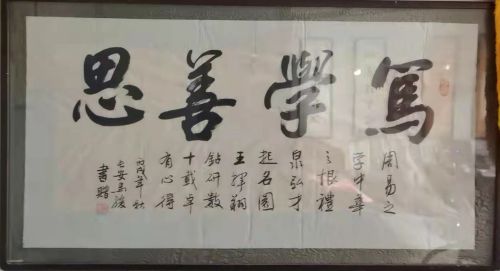 篤學善思
周易之
学中華
之根禮
泉弘才
起名園
王輝翔
鉆研數
十載卓
有心得
丙戌年秋
书贈